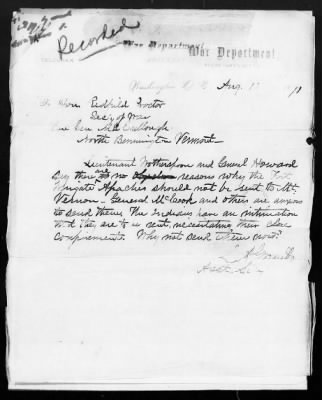 Recorded
War Department
War Department.
Washington D. C. Aug. 1
To Hon Redfield Proctor
Sec'y of War
Care Gen. McCullough
North Bennington Vermont
Lieutenant Wotherspoon and General Howard
say there are no reasons why the Fort
Wingate Apaches should not be sent to Mt.
Vernon. General McCook and others are anxious
to send them. The Indians have an intimation
that they are to be sent, necessitating their close
confinement. Why not send them now?
L. A. Grant
Asst. Sec